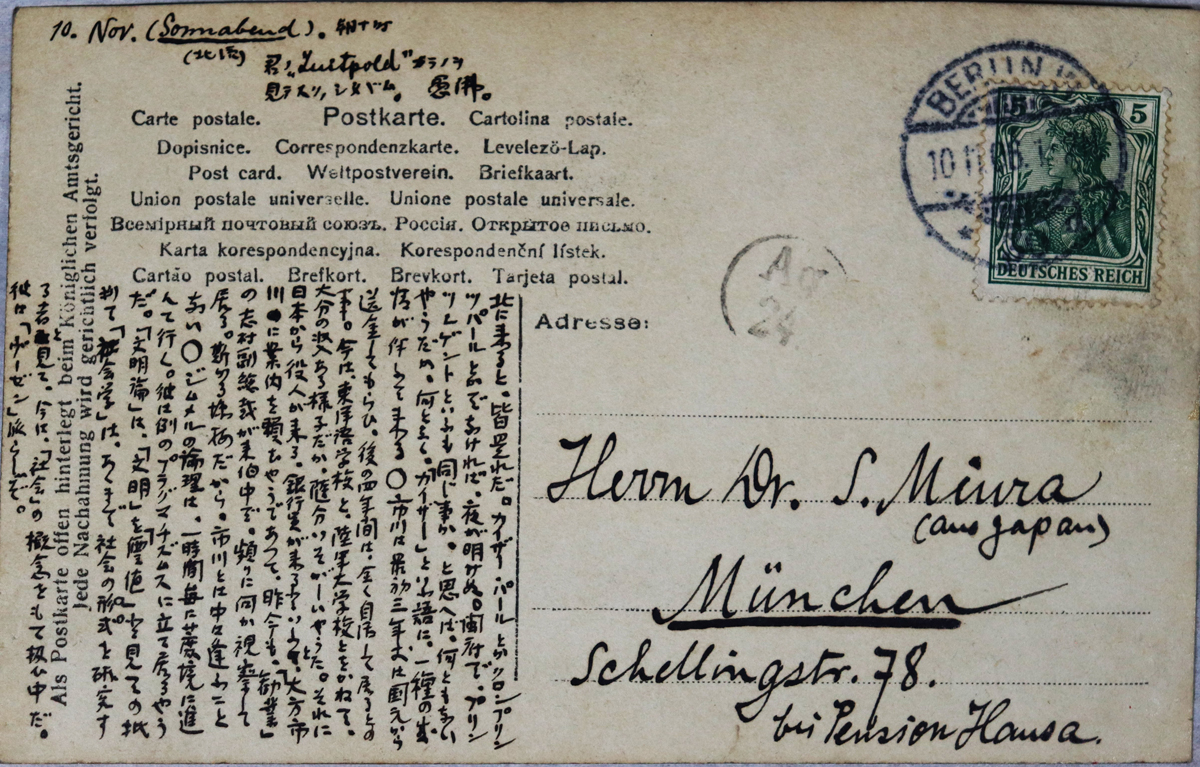 10. Nov. (Sonnabend). 朝十時
君ノ "Luitpold"
Carte postale. Postkarte. Cartolina postale.
Dopisnice. Correspondenzkarte. Levelező-Lap.
Post card. Weltpostverein. Briefkaart.
Union postale universelle. Unione postale universale.
Всемірный почтовый союзъ. Россія. Открытое письмо.
Karta korespondencyjna. Korespondenční lístek.
Cartão postal. Brefkort. Brevkort. Tarjeta postal.
Als Postkarte offen hinterlegt beim Königlichen Amtsgericht.
Jede Nachahmung wird gerichtlich verfolgt.
北に来ると、皆異れた。カイザーパールとクロンプリン
ツパールと云でなければ、夜が明けぬ。プリン
ツレゲントといふも同じ事か、と思へば、何ともない
やうだめ。何となく「カイザー」という語に、一種の
情が伴って来る〇市川は最初三年丈は国元から
送金してもらひ、後の四年間は、全く自活して居るとの
事。今は、東洋語学校と、陸軍大学校とをかねて、
大分の収入ある様子だが、随分いそがしいやうだ。それに
日本から役人が来る、銀行員が来るといっては、大方市
川に案内を頼むやうであって、昨今も、「勧業」
の志村副総裁が来伯中で、頻りに何か視察して
居る。斯る塩梅だから、市川とは中々逢ふこと
ない〇ジムメルの論理は、一時間毎に蔗境に進
んで行く。彼は例のプラグマチズムスに立て居るやう
だ。「文明論」は、「文明」を「価値」と見ての
「社会学」は、あくまで、社会の形式を研究す
る者と見て、今は、「社会」の概念をもて扱ひ中だ。
彼は「ヴーゼン」派らしぞ。
BERLIN W
10 11 06
5 5
DEUTSCHES REICH
Ag
24
Adresse:
Herrn Dr. S. Miura
(aus Japan)
München
Schellingstr. 78.
bei Pension Hansa.